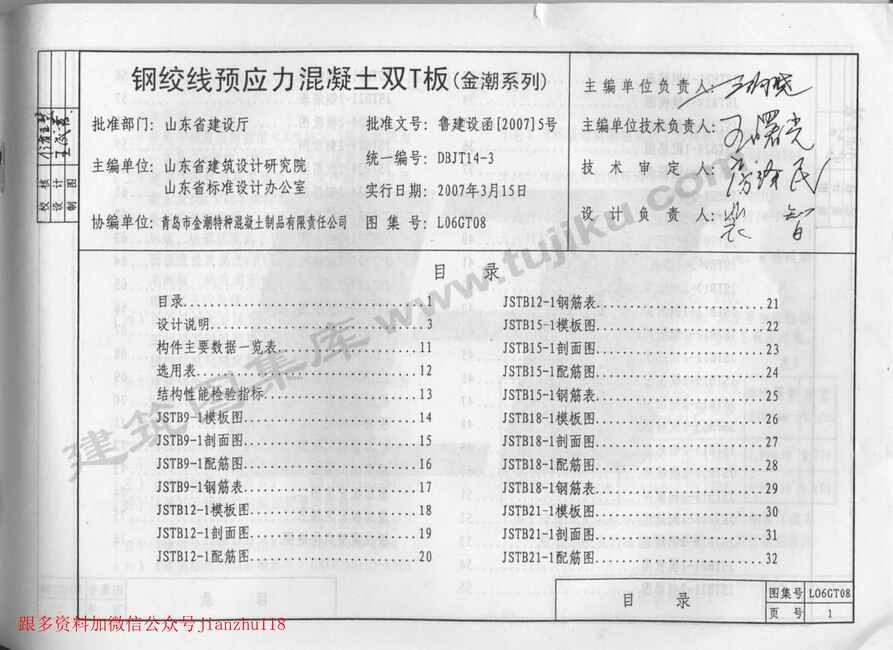 钢绞线预应力混凝土双T板(金潮系列)
批准部门: 山东省建设厅
批准文号: 鲁建设函[2007]5号
主编单位: 山东省建筑设计研究院
山东省标准设计办公室
统一编号: DBJT14-3
实行日期: 2007年3月15日
协编单位: 青岛市金潮特种混凝土制品有限责任公司
图集号: L06GT08
主编单位负责人:
主编单位技术负责人: 王曙光
技术审定人:
设计负责人: 裴智
校核
设计
制图
目 录
目录 1
设计说明 3
构件主要数据一览表 11
选用表 12
结构性能检验指标 13
JSTB9-1模板图 14
JSTB9-1剖面图 15
JSTB9-1配筋图 16
JSTB9-1钢筋表 17
JSTB12-1模板图 18
JSTB12-1剖面图 19
JSTB12-1配筋图 20
JSTB12-1钢筋表 21
JSTB15-1模板图 22
JSTB15-1剖面图 23
JSTB15-1配筋图 24
JSTB15-1钢筋表 25
JSTB18-1模板图 26
JSTB18-1剖面图 27
JSTB18-1配筋图 28
JSTB18-1钢筋表 29
JSTB21-1模板图 30
JSTB21-1剖面图 31
JSTB21-1配筋图 32
目 录
图集号 L06GT08
页 号 1
建筑图集库 www.tujiku.com
跟多资料加微信公众号jianzhu118